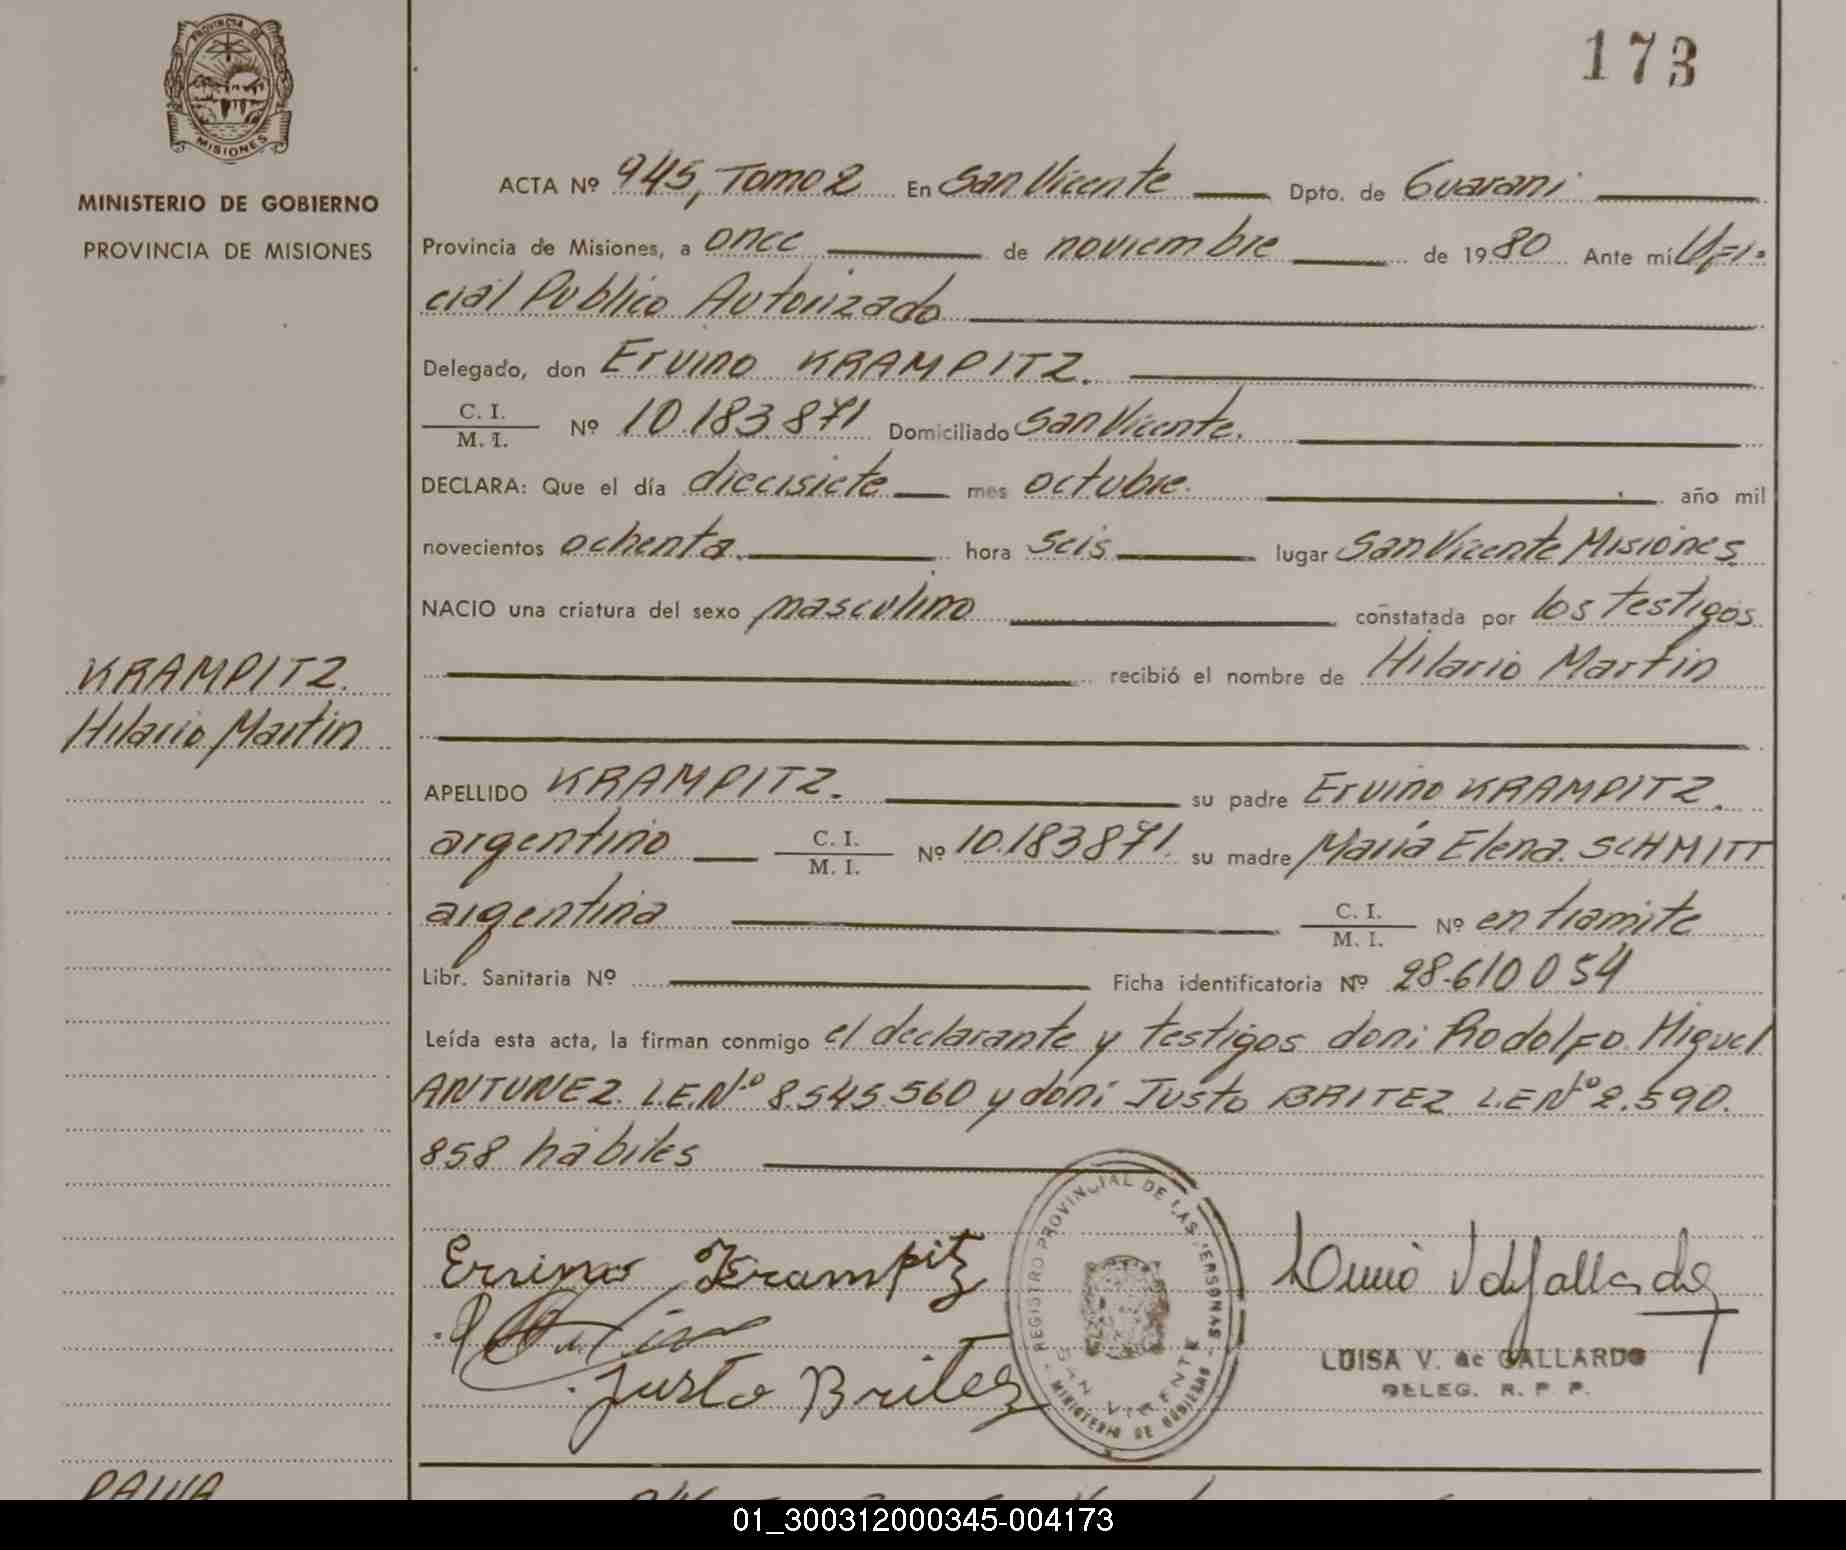 173
PROVINCIA DE
MISIONES
MINISTERIO DE GOBIERNO
PROVINCIA DE MISIONES
ACTA Nº 945, Tomo 2 En San Vicente Dpto. de Guarani
Provincia de Misiones, a once de noviembre de 1980 Ante mí Ofi-
cial Publico Autorizado
Delegado, don Ervino KRAMPITZ.
C. I.
M. I. Nº 10.183.871 Domiciliado San Vicente.
DECLARA: Que el día diecisiete mes octubre. año mil
novecientos ochenta. hora seis lugar San Vicente Misiones.
NACIO una criatura del sexo masculino constatada por los testigos
recibió el nombre de Hilario Martin
KRAMPITZ.
Hilario Martin
APELLIDO KRAMPITZ. su padre Ervino KRAMPITZ.
argentino C. I.
M. I. Nº 10.183871. su madre María Elena. SCHMITT
argentina C. I.
M. I. Nº en tramite
Libr. Sanitaria Nº Ficha identificatoria Nº 28-610054
Leída esta acta, la firman conmigo el declarante y testigos don: Rodolfo Miguel
ANTUNEZ. L.E.Nº 8.545.560 y don: Justo BRITEZ L.E Nº 2.590.
858 habiles
Ervino Krampitz
Justo Britez
REGISTRO PROVINCIAL DE LAS PERSONAS
SAN VICENTE
MINISTERIO DE GOBIERNO
LUISA V. de GALLARDO
DELEG. R. P. P.
PAIVA
01_300312000345-004173